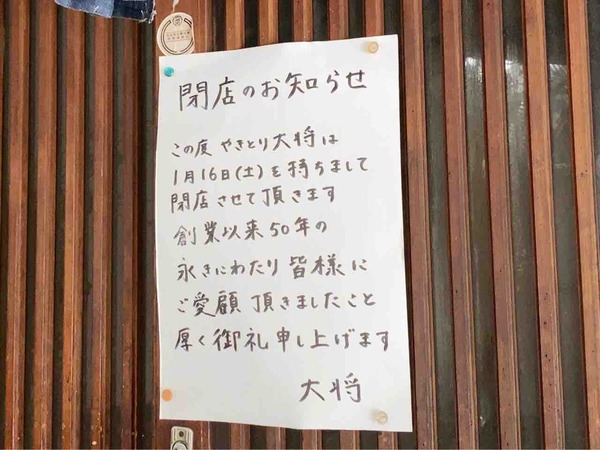 閉店のお知らせ
この度 やきとり大将は
1月16日(土)を持ちまして
閉店させて頂きます
創業以来50年の
永きにわたり皆様に
ご愛顧頂きましたこと
厚く御礼申し上げます
大将